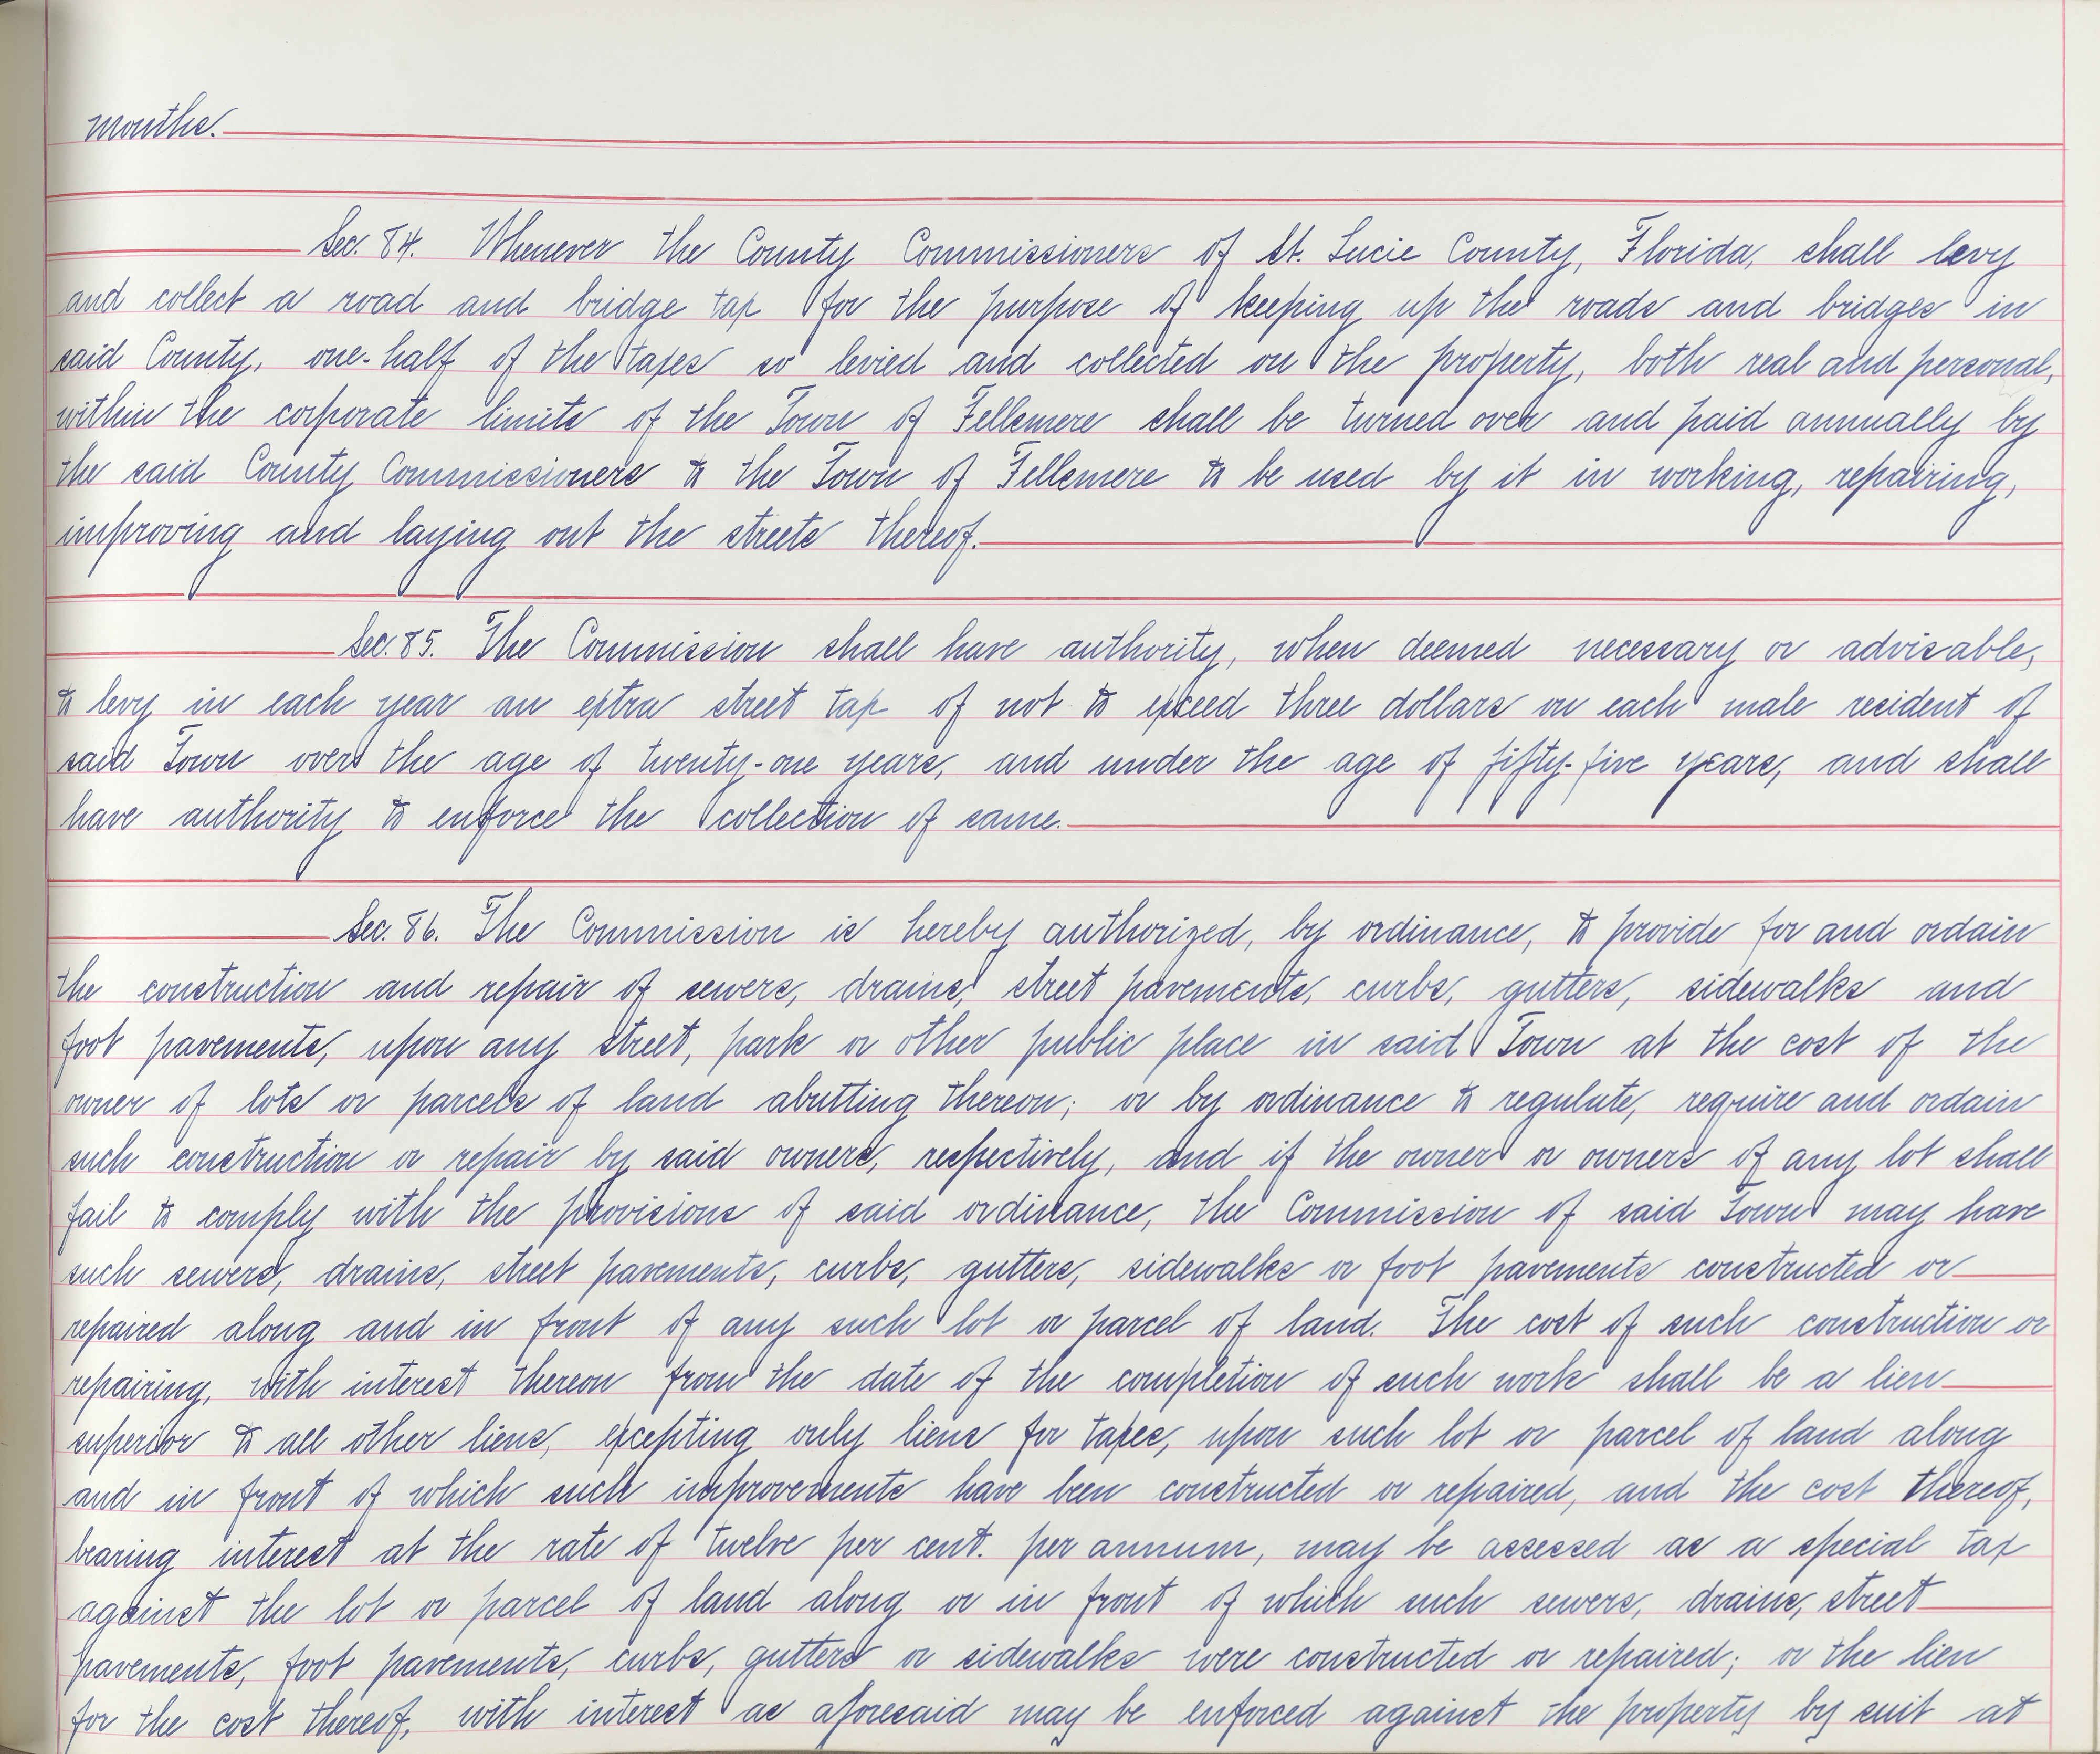 months.
Sec. 84. Whenever the County Commissioners of St. Lucie County, Florida, shall levy
and collect a road and bridge tax for the purpose of keeping up the roads and bridges in
said County, one-half of the taxes so levied and collected on the property, both real and personal,
within the corporate limits of the Town of Fellsmere shall be turned over and paid annually by
the said County Commissioners to the Town of Fellsmere to be used by it in working, repairing,
improving and laying out the streets thereof.
Sec. 85. The Commission shall have authority, when deemed necessary or advisable,
to levy in each year an extra street tax of not to exceed three dollars on each male resident of
said Town over the age of twenty-one years, and under the age of fifty-five years, and shall
have authority to enforce the collection of same.
Sec. 86. The Commission is hereby authorized, by ordinance, to provide for and ordain
the construction and repair of sewers, drains, street pavements, curbs, gutters, sidewalks and
foot pavements, upon any street, park or other public place in said Town at the cost of the
owner of lots or parcels of land abutting thereon; or by ordinance to regulate, require and ordain
such construction or repair by said owners, respectively, and if the owner or owners of any lot shall
fail to comply with the provisions of said ordinance, the Commission of said Town may have
such sewers, drains, street pavements, curbs, gutters, sidewalks or foot pavements constructed or
repaired along and in front of any such lot or parcel of land. The cost of such construction or
repairing, with interest thereon from the date of the completion of such work shall be a lien
superior to all other liens, excepting only liens for taxes, upon such lot or parcel of land along
and in front of which such improvements have been constructed or repaired, and the cost thereof,
bearing interest at the rate of twelve per cent. per annum, may be assessed as a special tax
against the lot or parcel of land along or in front of which such sewers, drains, street
pavements, foot pavements, curbs, gutters or sidewalks were constructed or repaired; or the lien
for the cost thereof, with interest as aforesaid may be enforced against the property by suit at